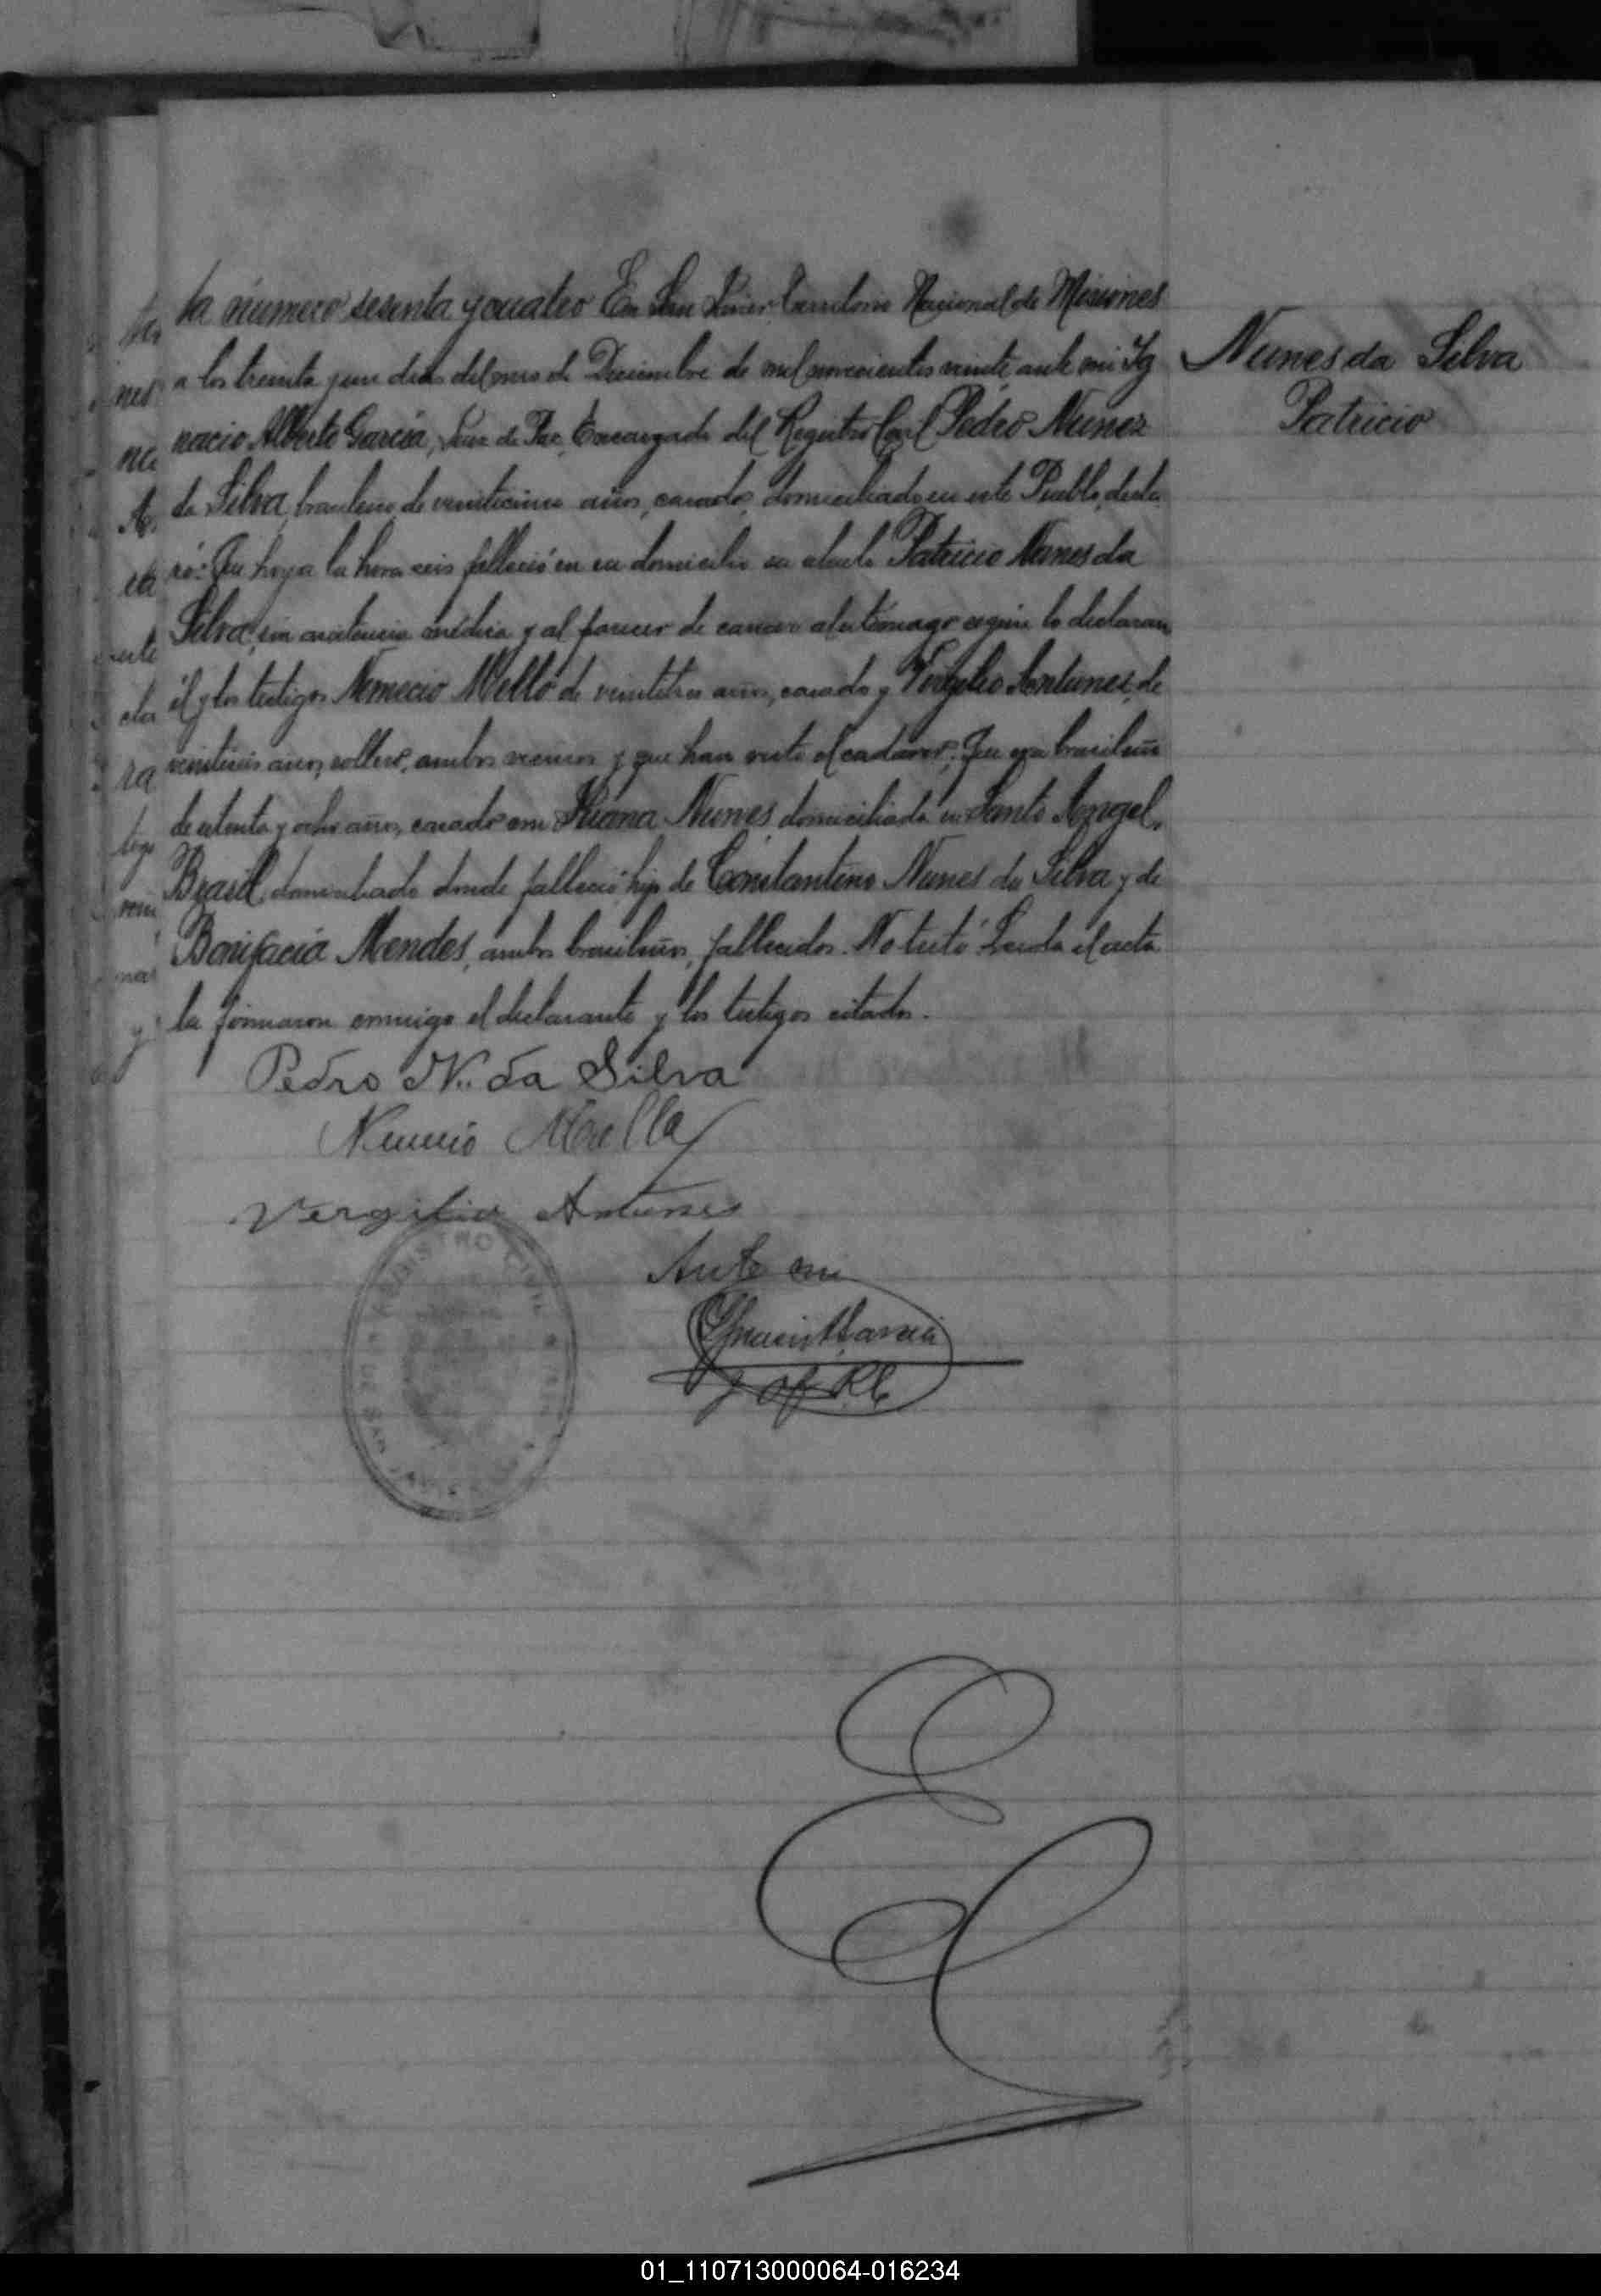 ta número sesenta y cuatro En San Javier Territorio Nacional de Misiones
a los treinta y un dias del mes de Diciembre de mil novecientos veinte, ante mi Ig
nacio Alberto Garcia, Juez de Paz, Encargado del Registro Civil Pedro Nunez
da Silva, brasilero, de veinticinco años, casado, domiciliado en este Pueblo, decla
ró: Que hoy a la hora seis falleció en su domicilio su abuelo Patricio Nunes da
Silva, sin asistencia médica y al parecer de cancer al estómago segun lo declaran
él y los testigos Nemecio Mello de veintitres años, casado y Vergilio Antunes, de
veintiseis años, soltero, ambos vecinos y que han visto el cadáver. Que era brasileño
de setenta y ocho años, casado con Nunes domiciliada en Santo Angel,
Brasil, domiciliado donde falleció hijo de Constantino Nunes da Silva y de
Bonifacia Mendes, ambos brasileños, fallecidos. No testó. Leida el acta
la firmaron conmigo el declarante y los testigos citados.
Nunes da Silva
Patricio
Pedro N. da Silva
Vergilio Antunes
Ante mi
REGISTRO CIVIL
DE SAN JAVIER
01_110713000064-016234